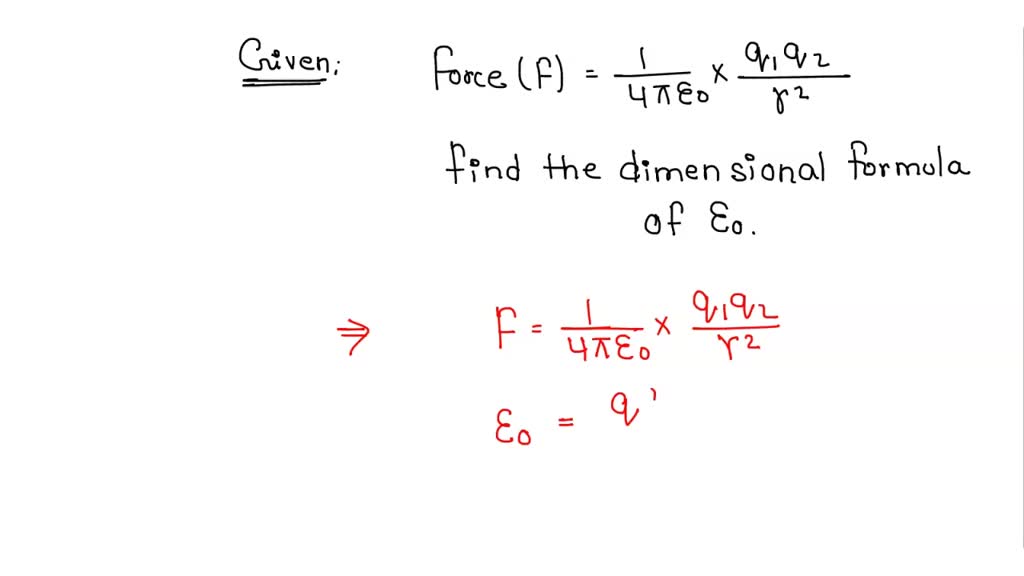 Given: Force (F) = 1/4πε0 × q1q2/r²
find the dimensional formula
of ε0.
⇒ F = 1/4πε0 × q1q2/r²
ε0 = q